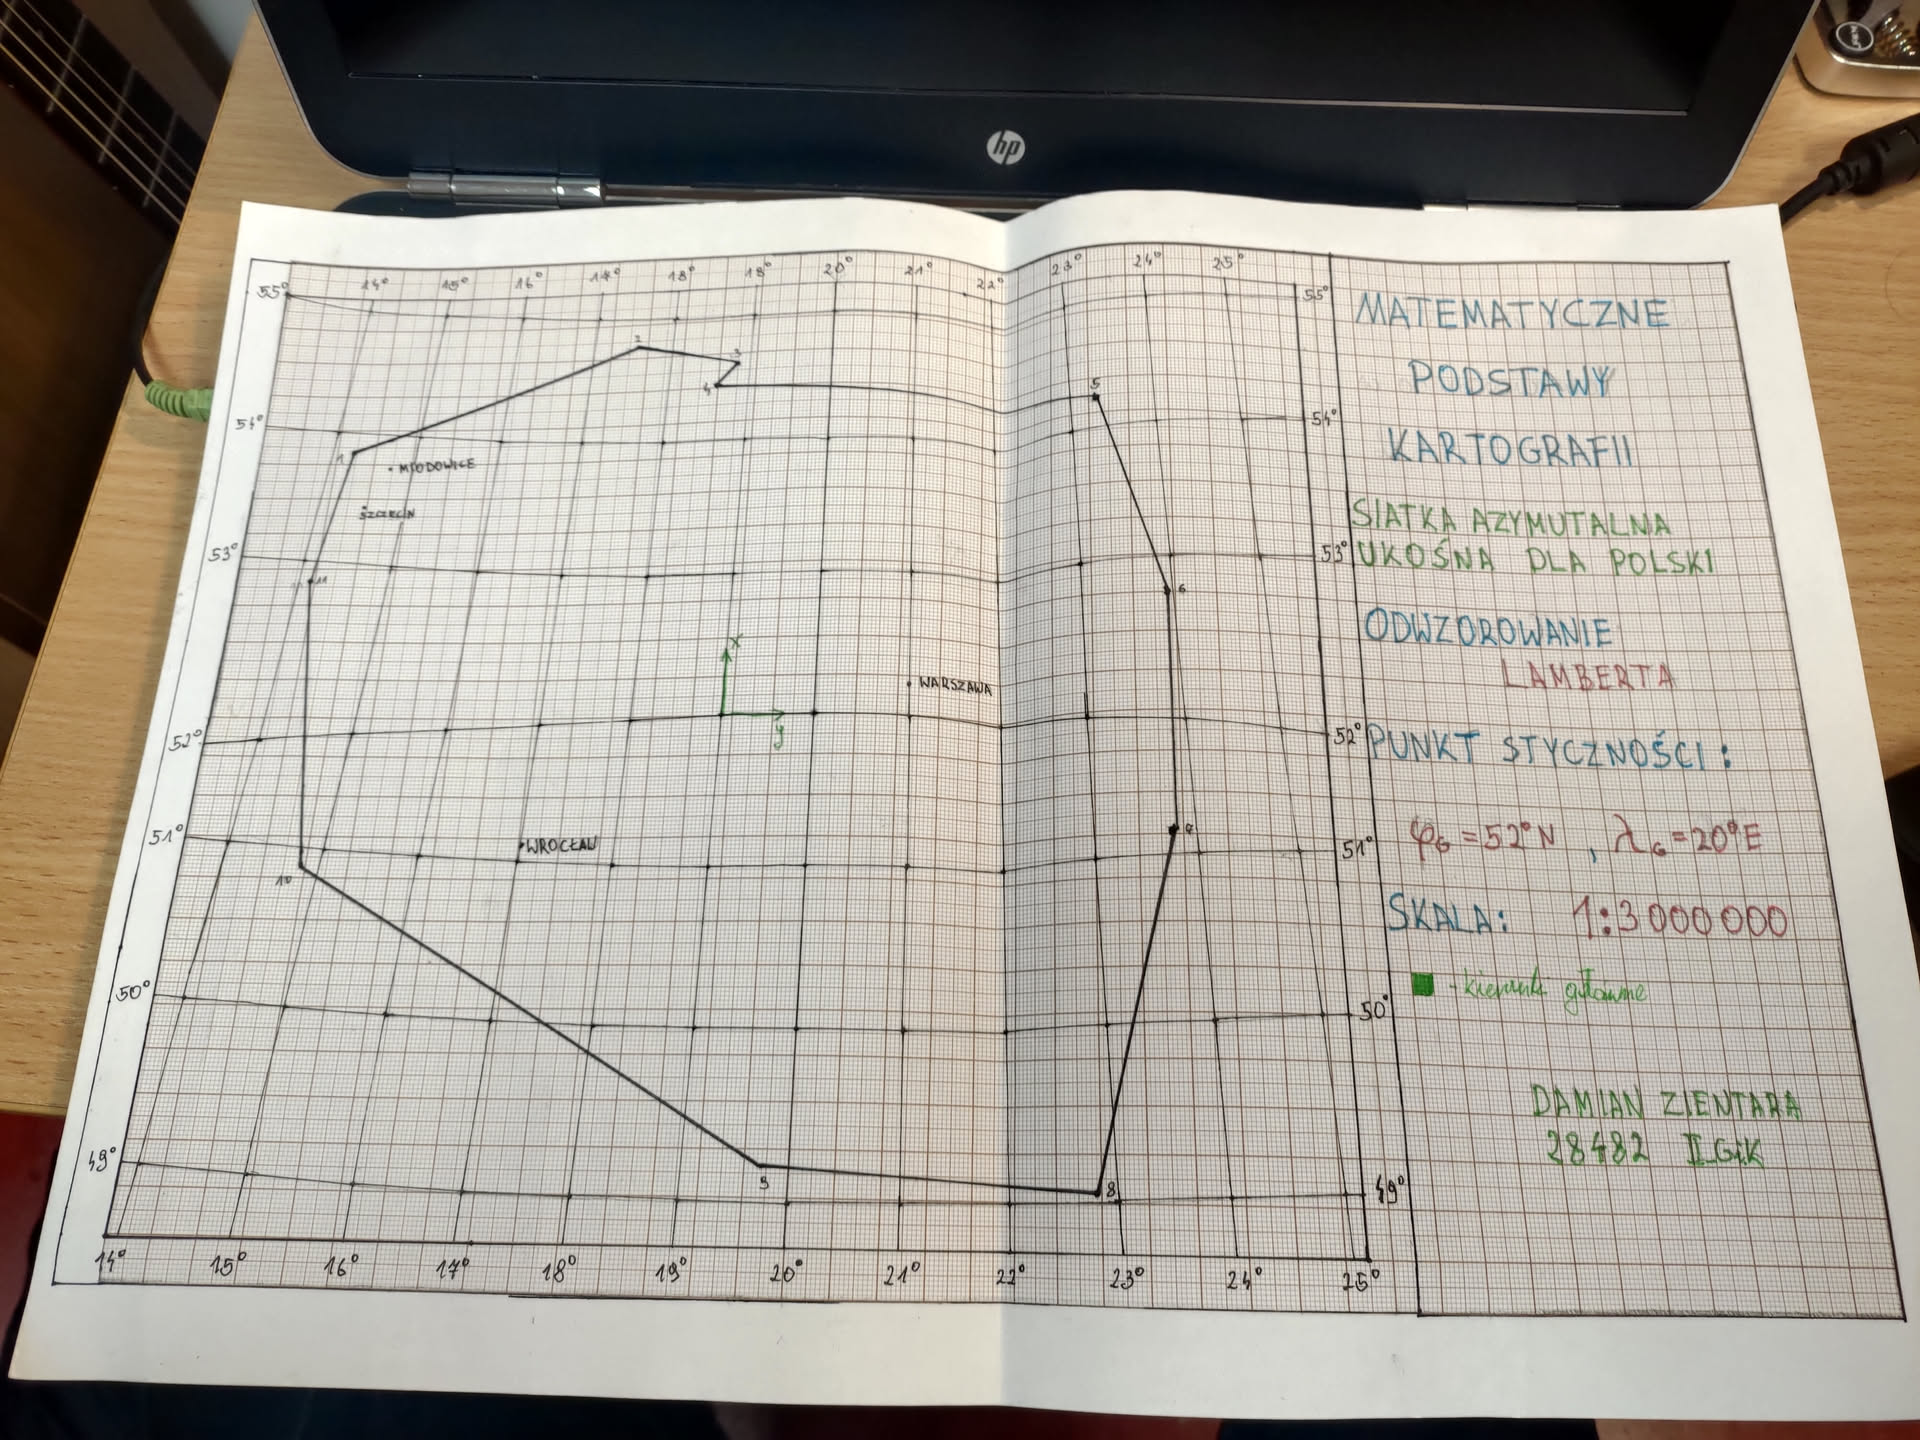 hp
14° 15° 16° 17° 18° 19° 20° 21° 22° 23° 24° 25°
55° 55°
2
3
4
5
54° 54°
1
MIODOWICE
SZCZECIN
53° 53°
11
6
x
y
WARSZAWA
52° 52°
7
51° 51°
WROCŁAW
10
50° 50°
49° 49°
9
8
14° 15° 16° 17° 18° 19° 20° 21° 22° 23° 24° 25°
MATEMATYCZNE
PODSTAWY
KARTOGRAFII
SIATKA AZYMUTALNA
UKOŚNA DLA POLSKI
ODWZOROWANIE
LAMBERTA
PUNKT STYCZNOŚCI:
φG = 52°N , λG = 20°E
SKALA: 1:3 000 000
- kierunki główne
DAMIAN ZIENTARA
28482 II GiK